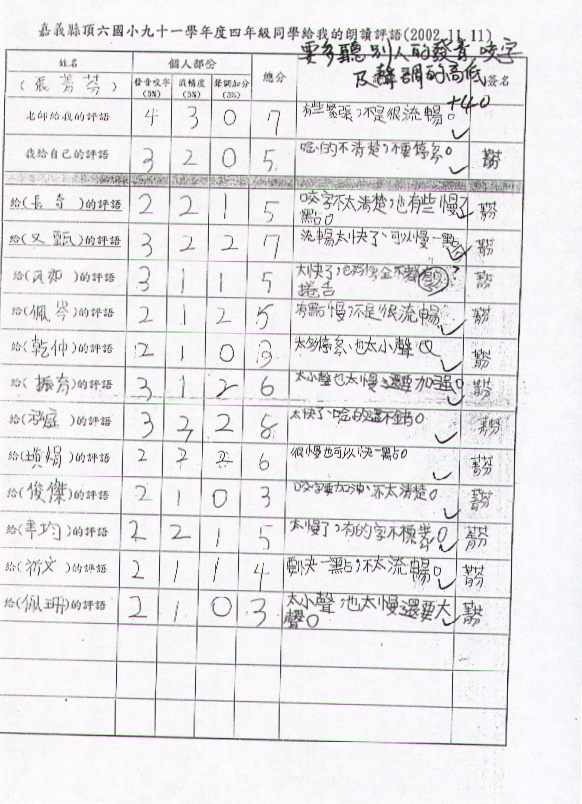 嘉義縣頂六國小九十一學年度四年級同學給我的朗讀評語(2002.11.11)
要多聽別人的發音咬字
及聲調的高低
+40
姓名 個人部份 總分 簽名
(張菁芬) 發音咬字(5%) 流暢度(5%) 聲調加分(3%)
老師給我的評語 4 3 0 7 有些緊張,不是很流暢。
我給自己的評語 3 2 0 5 唸的不清楚,不要停多。 菁芬
給(長奇)的評語 2 2 1 5 咬字不太清楚,也有些慢了點。 菁芬
給(又甄)的評語 3 2 2 7 流暢太快了、可以慢一點 菁芬
給( )的評語 3 1 1 5 太快了, 菁芬
給(佩岑)的評語 2 1 2 5 有點慢,不是很流暢。 菁芬
給(乾仲)的評語 2 1 0 3 太多停多,也太小聲。 菁芬
給(振育)的評語 3 1 2 6 太小聲也太慢,還要加強。 菁芬
給( )的評語 3 2 8 太快了,唸的還不錯。 菁芬
給( 娟)的評語 2 2 2 6 很慢也可以快一點。 菁芬
給(俊傑)的評語 2 1 0 3 咬字要加油,不太清楚。 菁芬
給( 均)的評語 2 2 1 5 太慢了,有的字不標準。 菁芬
給(祈文)的評語 2 1 1 4 要快一點,不太流暢。 菁芬
給(佩珊)的評語 2 1 0 3 太小聲,也太慢還要大聲。 菁芬